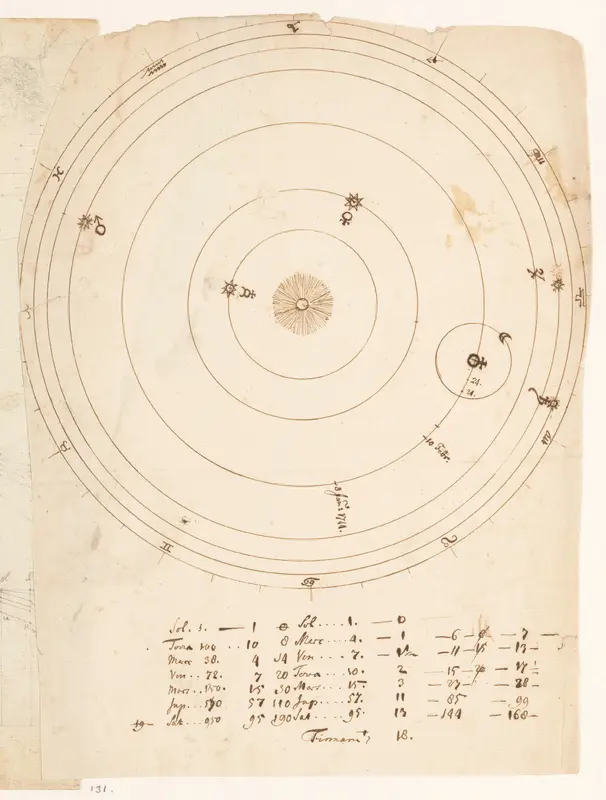 ♑
♐
♒
♏
♓
♀
♂
♃
♎
☿
♄
♌
24.
21.
10 Febr.
♉
♍
♊
♋
Sol. 1. — 1 0 Sol. . . . 1. — 0
Terra 100 . . 10 8 Merc . . . 4. — 1 — 6 — — 7 —
Merc 38. 4 14 Ven . . . 7. — 11 — 13 —
Ven . . 72. 7 20 Terra . . 10. 2 — 15 — 17
Mars . . 150. 15 30 Mars . . 15. 3 — 27 — — 28 —
Jup . . . 570 57 110 Jup . . . 57. 11 — 85 — 99
19 — Sat . . 950 95 190 Sat . . 95. 13 — 144 — 168 —
Firmamt 18.
131.